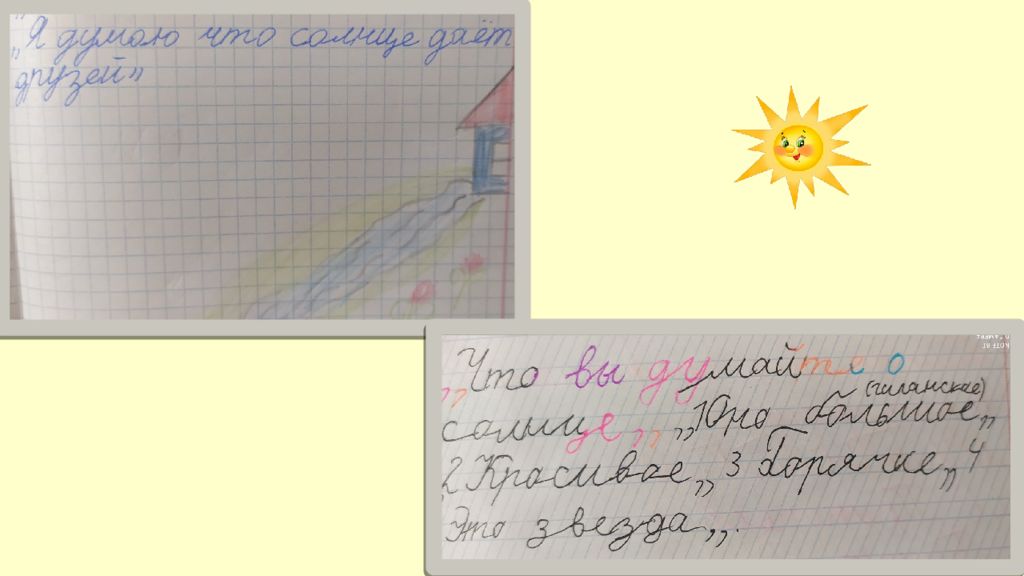 „Я думаю что солнце даёт
друзей"
„Что вы думайте о
(гиганское)
солнце„ „1Оно большое„
2 Красивое„ 3 Горячке„ 4
Это звезда„.